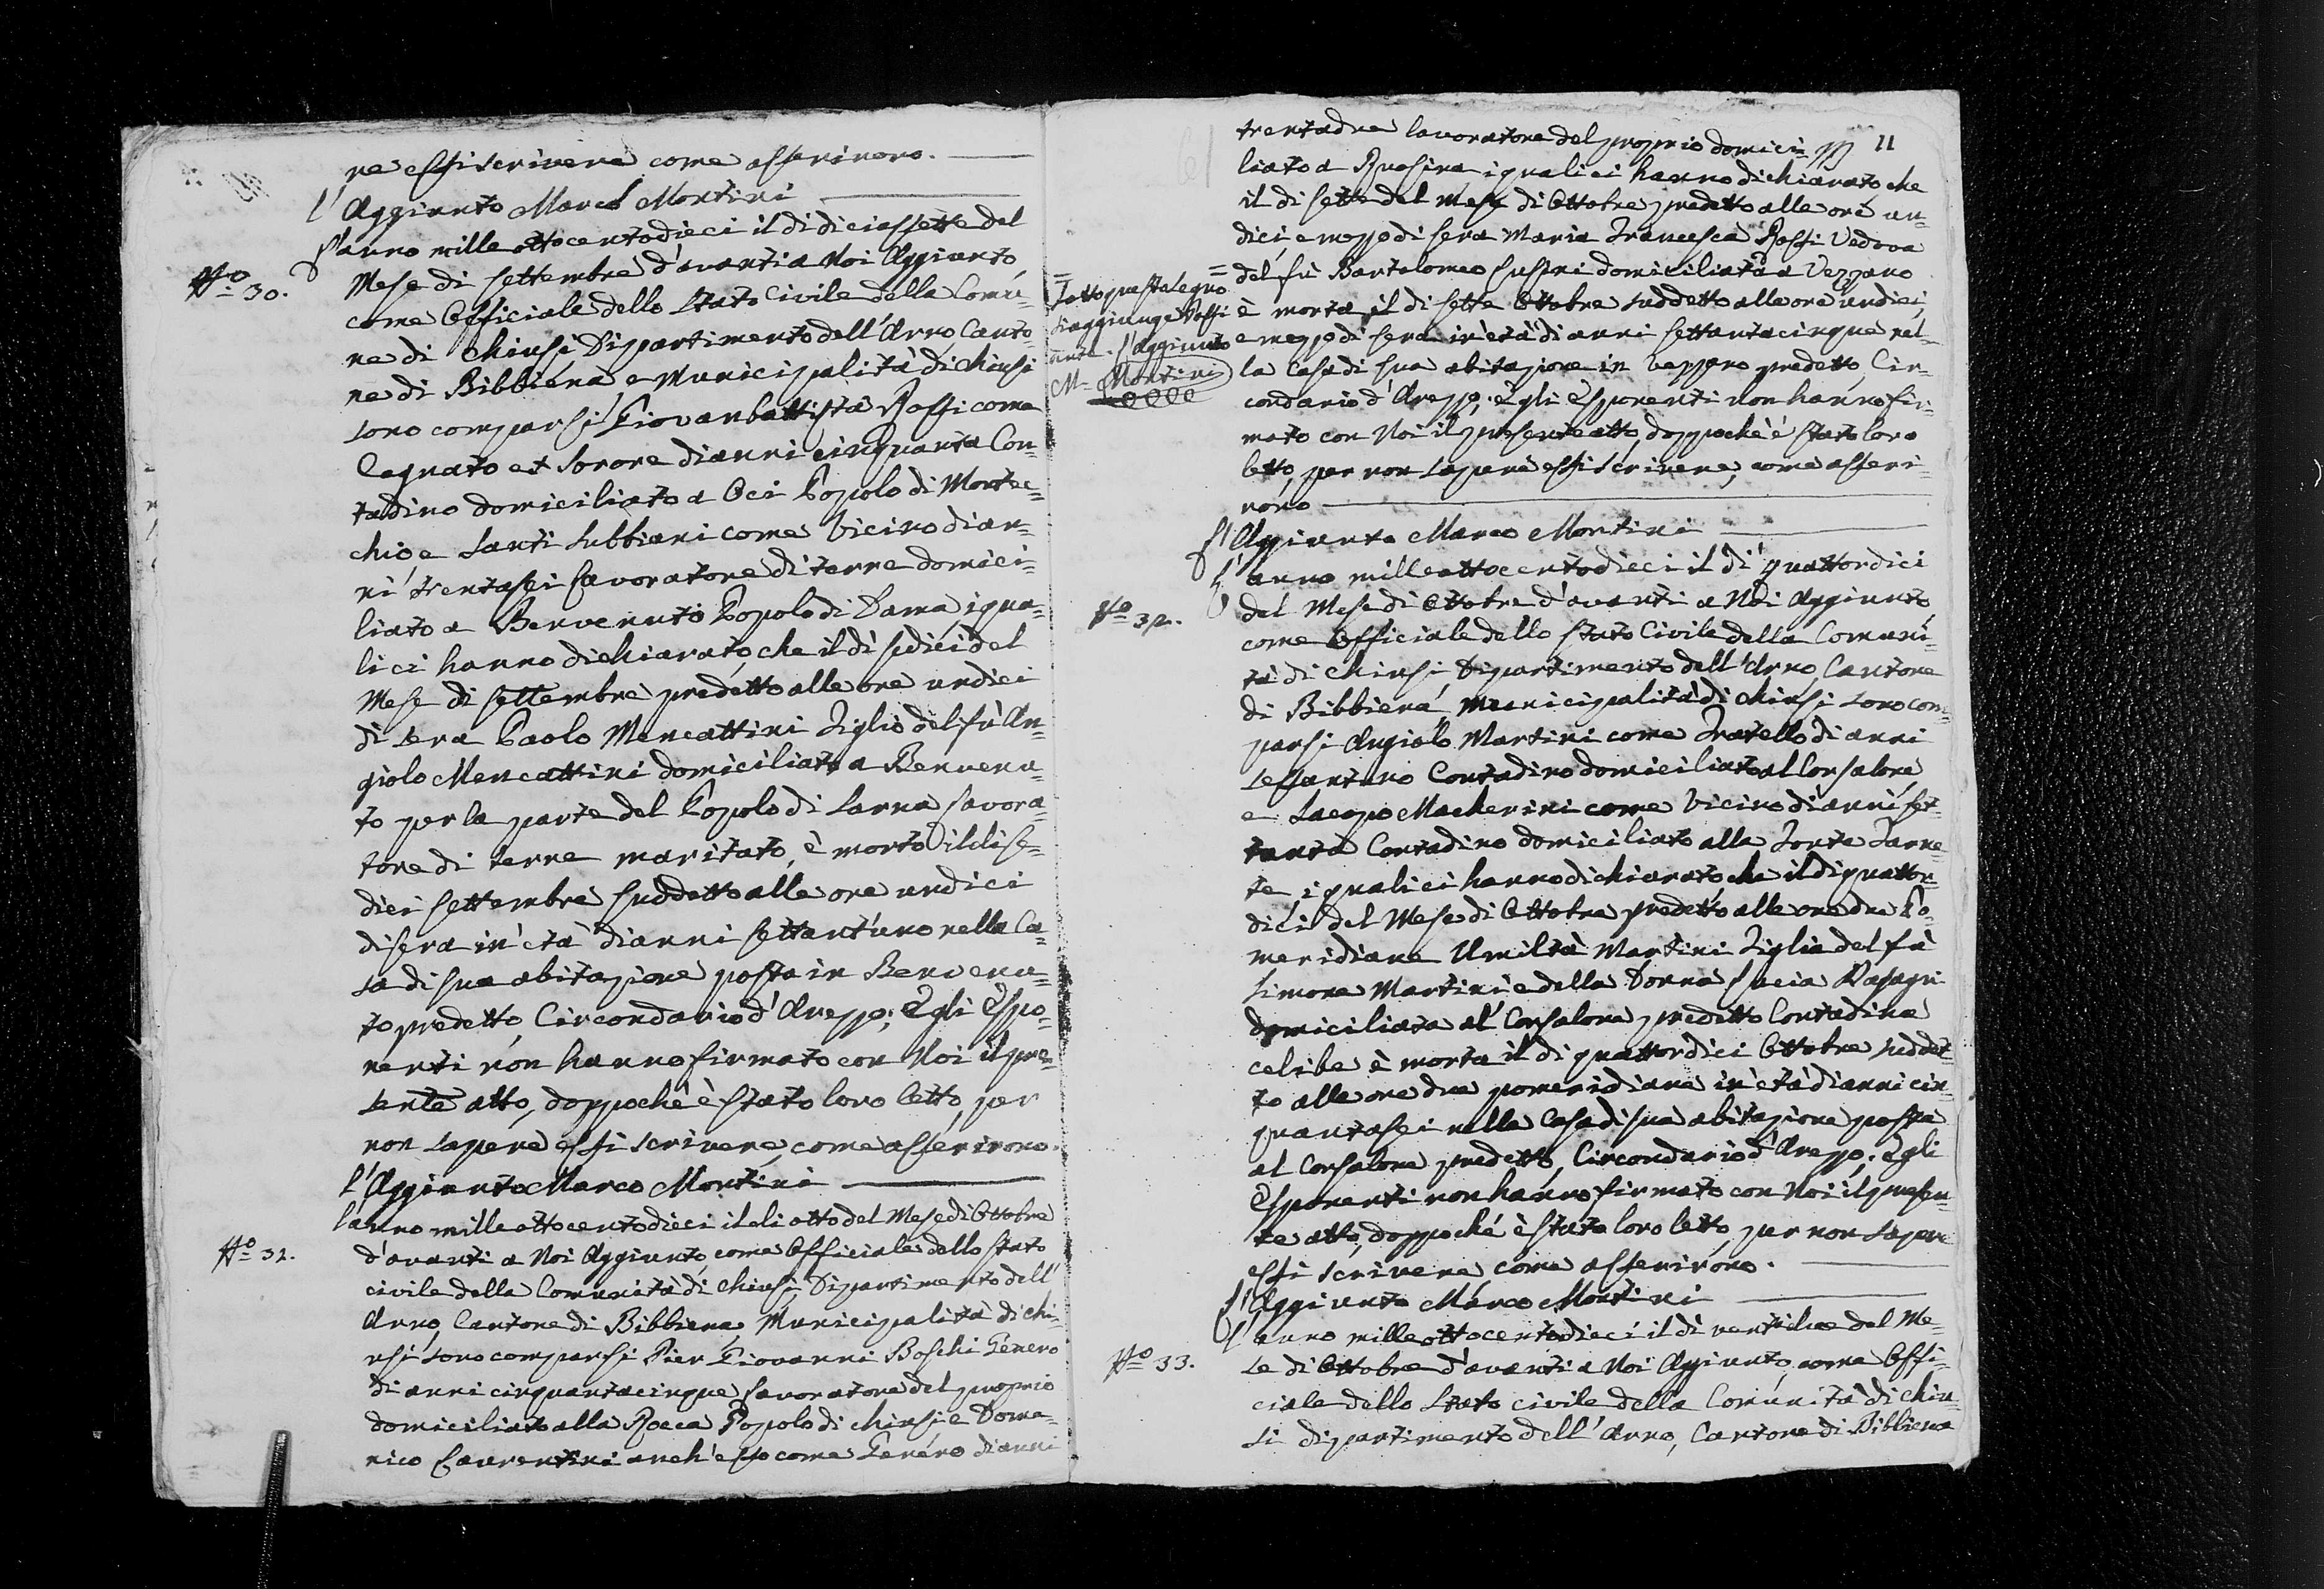 re essi scrivere come asserirono.
l'Aggiunto Marco Montini
N.o 30.
L'anno mille ottocentodieci il di diciassette del
Mese di Settembre d'avanti a Noi Aggiunto,
come Officiale dello Stato Civile della Comu=
ne di Chiusi Dipartimento dell'Arno, Canto=
ne di Bibbiena, e Municipalità di Chiusi
sono comparsi Giovanbattista Rossi come
Cognato ex Sorore di anni cinquanta Con=
tadino domiciliato a Oci Popolo di Montec=
chio, e Santi Subbiani come Vicino di an=
ni trentasei Lavoratore di terre domici=
liato a Benvenuto Popolo di Dama, i qua=
li ci hanno dichiarato, che il dì sedici del
Mese di Settembre predetto alle ore undici
di sera Paolo Mencattini Figlio del fù An=
giolo Mencattini domiciliato a Benvenu=
to per la parte del Popolo di Sarna Lavora=
tore di terre maritato, è morto il di se=
dici Settembre suddetto alle ore undici
di sera in età di anni settant'uno nella Ca=
sa di sua abitazione posta in Benvenu=
to predetto, Circondario d'Arezzo; E gli Espo=
nenti non hanno firmato con Noi il pre=
sente atto, doppochè è stato loro letto, per
non sapere essi scrivere, come asserirono.
l'Aggiunto Marco Montini
N.o 31.
L'anno mille ottocentodieci il di otto del Mese di Ottobre
d'avanti a Noi Aggiunto, come Officiale dello Stato
civile della Comunità di Chiusi, Dipartimento dell'
Arno, Cantone di Bibbiena, Municipalità di Chi=
usi sono comparsi Pier Giovanni Boschi Genero
di anni cinquantacinque Lavoratore del proprio
domiciliato alla Rocca Popolo di Chiusi e Dome=
nico Laurentini anch'esso come Genero di anni
11
trentadue lavoratore del proprio domici=
liato a Rosina i quali ci hanno dichiarato che
il di sette del Mese di Ottobre predetto alle ore un=
dici, e mezzo di sera Maria Francesca Rossi Vedova
= del fù Bartolomeo Susini domiciliata a Vezzano
è morta il di sette Ottobre suddetto alle ore undici,
e mezzo di sera in età di anni settantacinque nel=
la Casa di sua abitazione in Vezzano predetto, Cir=
condario d'Arezzo; E gli Esponenti non hanno fir=
mato con Noi il presente atto, doppochè è stato loro
letto, per non sapere essi scrivere, come asseri=
rono
= Sotto questo segno
si aggiunge Possi
dente. l'Aggiunto
M. Montini
L'Aggiunto Marco Montini
N.o 32.
L'anno mille ottocentodieci il di quattordici
del Mese di Ottobre d'avanti a Noi Aggiunto,
come Officiale dello Stato Civile della Comuni=
tà di Chiusi, Dipartimento dell'Arno, Cantone
di Bibbiena, Municipalità di Chiusi sono com=
parsi Angiolo Martini come Fratello di anni
sessantuno Contadino domiciliato al Corsalone,
e Jacopo Macherini come Vicino di anni set=
tanta Contadino domiciliato alla Fonte Farne=
te, i quali ci hanno dichiarato, che il di quattor=
dici del Mese di Ottobre predetto alle ore due Po=
meridiane Umiltà Martini Figlia del fù
Simone Martini e della Donna Lucia
domiciliata al Corsalone predetto Contadina
celibe è morta il di quattordici Ottobre suddet=
to alle ore due pomeridiane in età di anni cin=
quantasei nella Casa di sua abitazione posta
al Corsalone predetto, Circondario d'Arezzo; E gli
Esponenti non hanno firmato con Noi il presen=
te atto, doppoché è stato loro letto, per non sapere
essi scrivere come asserirono.
L'Aggiunto Marco Montini
N.o 33.
L'anno mille ottocentodieci il di ventidue del Me=
se di Ottobre d'avanti a Noi Aggiunto, come Offi=
ciale dello Stato civile della Comunità di Chiu=
si dipartimento dell'Arno, Cantone di Bibbiena